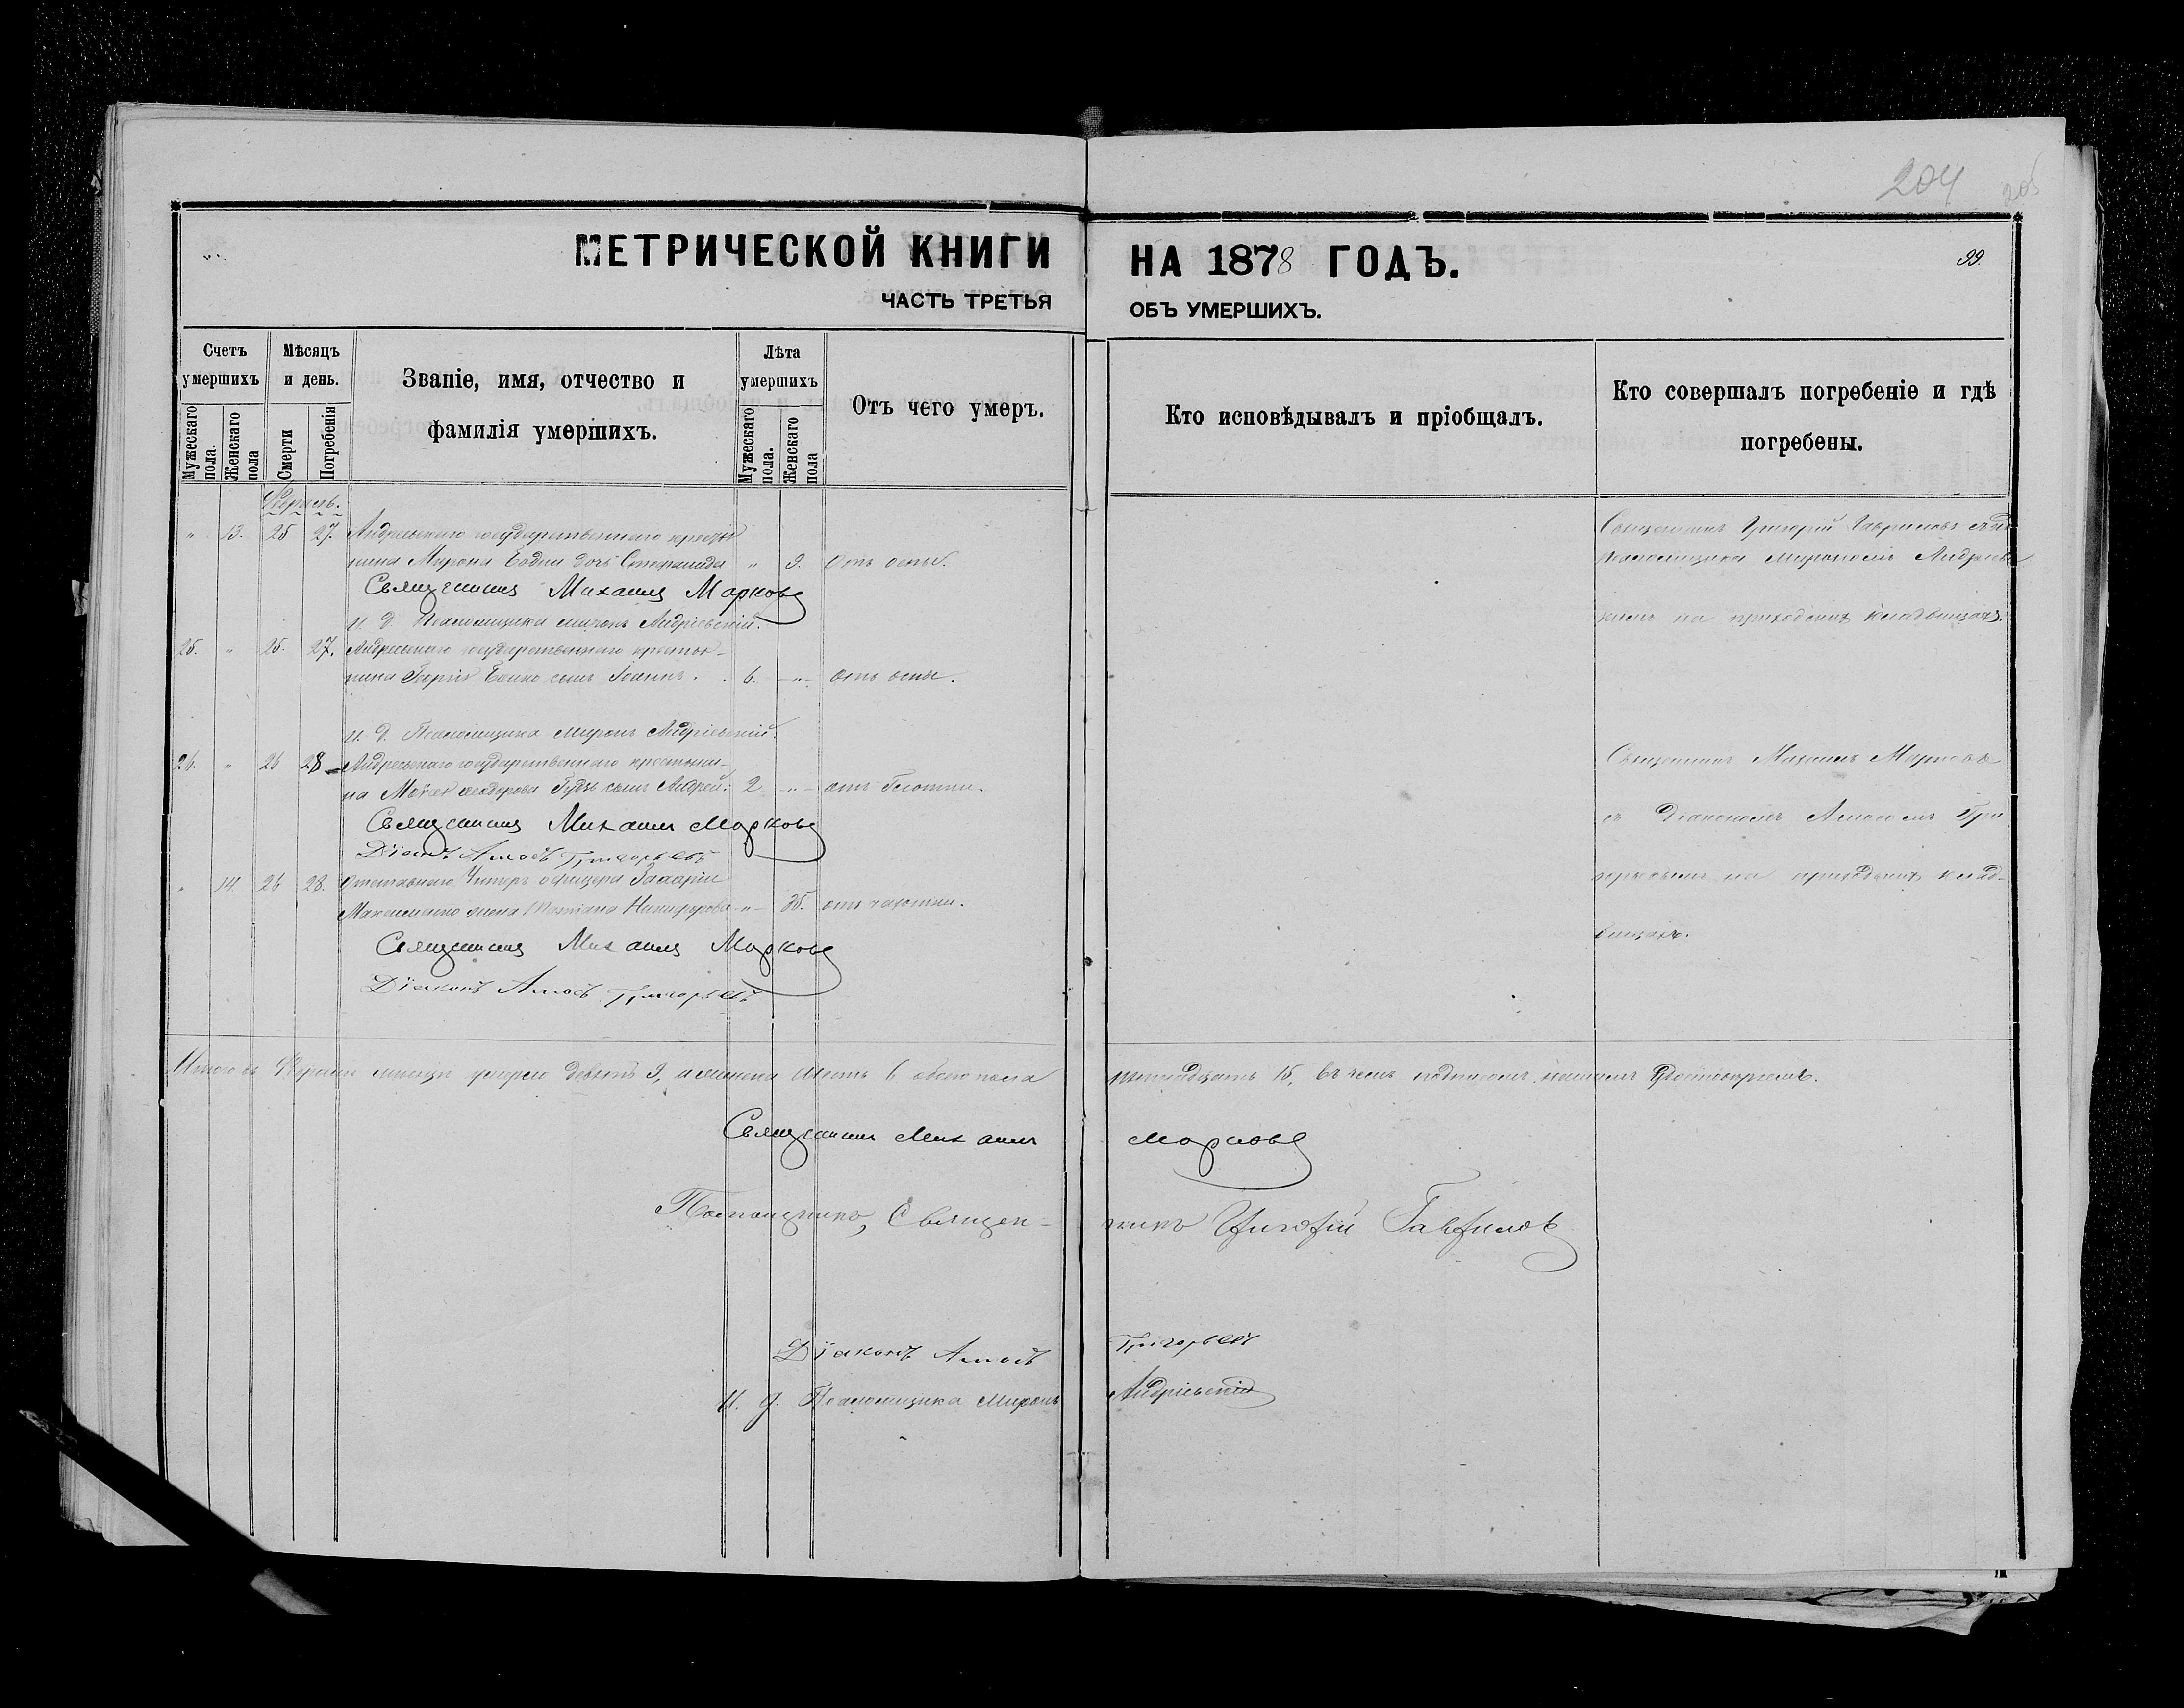 204
205
МЕТРИЧЕСКОЙ КНИГИ НА 1878 ГОДЪ.
99.
ЧАСТЬ ТРЕТЬЯ ОБЪ УМЕРШИХЪ.
Счетъ умершихъ
Мѣсяцъ и день.
Званіе, имя, отчество и фамилія умершихъ.
Лѣта умершихъ
Отъ чего умеръ.
Кто исповѣдывалъ и пріобщалъ.
Кто совершалъ погребеніе и гдѣ погребены.
Мужескаго пола.
Женскаго пола
Смерти
Погребенія
Мужескаго пола.
Женскаго пола
" 13. 25 27. государственнаго
нина Мирона дочь Стефанида " 9. отъ
Священникъ Михаилъ Марковъ
И. д. Псаломщика Миронъ Андріевскій.
Священникъ Григорій Гавриловъ
псаломщика Мирономъ
на приходскихъ кладбищахъ.
25. " 25. 27. государственнаго крестья-
нина Георгія Бойко сынъ Іоаннъ. 6. " отъ оспы.
И. д. Псаломщика Миронъ Андріевскій.
26. " 26 28 государственнаго крестьяни-
на сынъ Андрей. 2 " отъ
Священникъ Михаилъ Марковъ
Діаконъ Амосъ Григорьевъ
Священникъ Михаилъ Марковъ
съ Діакономъ Амосомъ Гри
горьевымъ на приходскихъ клад-
бищахъ.
" 14. 26 28. Отставнаго Унтеръ офицера Захарія
Максименко жена Татіана Никифорова " 35. отъ чахотки.
Священникъ Михаилъ Марковъ
Діаконъ Амосъ Григорьевъ
Итого въ мѣсяцѣ умерло девять 9, а женска шесть 6 обоего пола пятнадцать 15, въ чемъ подписомъ нашимъ
Священникъ Михаилъ Марковъ
Помощникъ, Священ- никъ Григорій Гавриловъ
Діаконъ Амосъ Григорьевъ
И. д. Псаломщика Миронъ Андріевскій